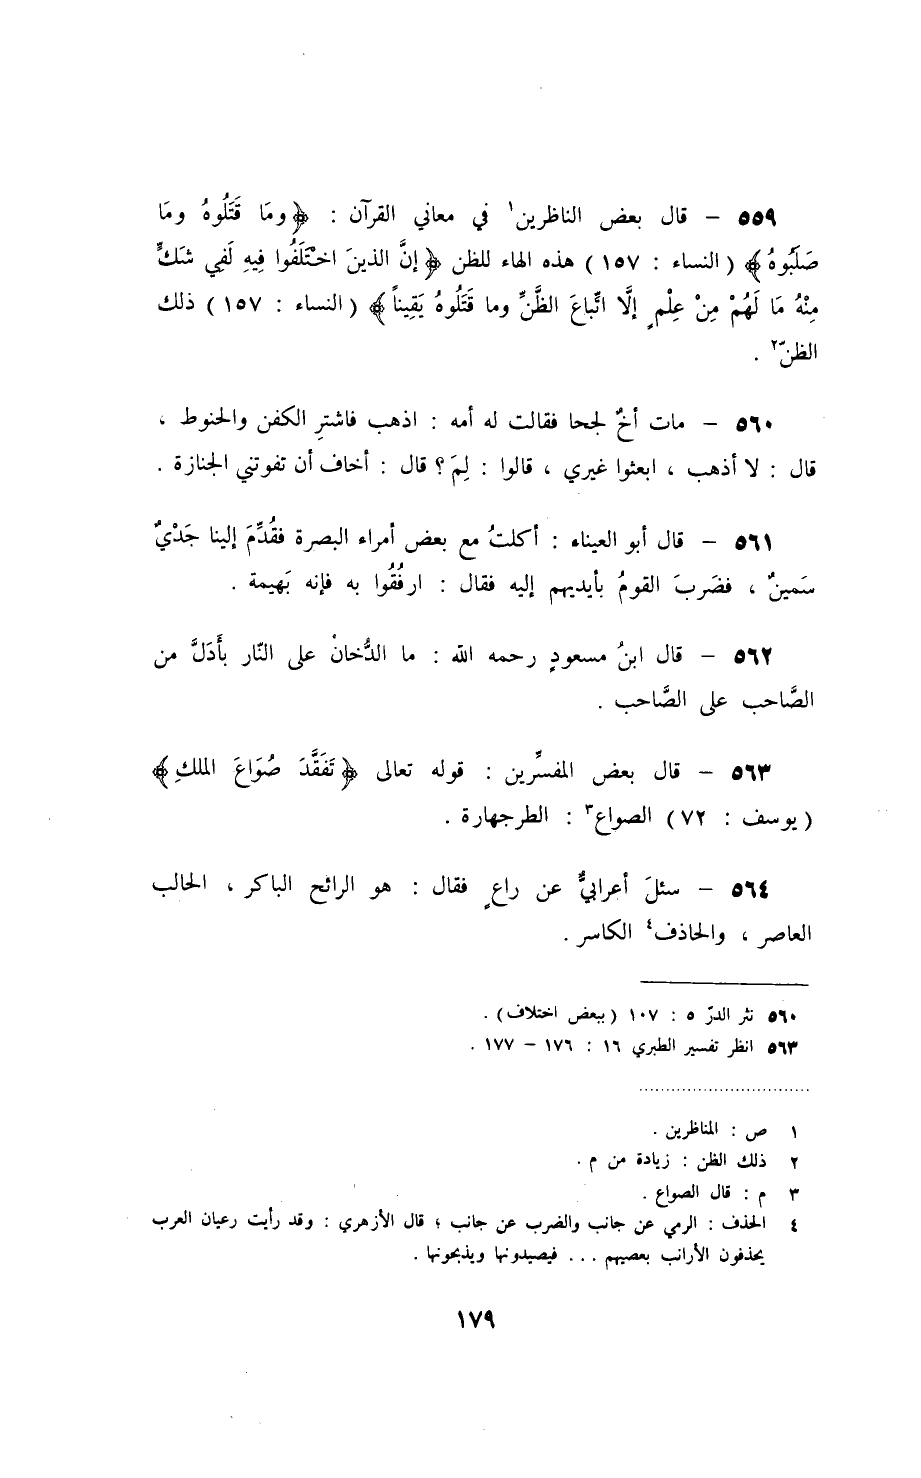 ٥٥٩ – قال بعض الناظرين١ في معاني القرآن : ﴿وَمَا قَتَلُوهُ ومَا
صَلَبُوهُ﴾ ( النساء : ١٥٧ ) هذه الهاء للظن ﴿إنَّ الذينَ اخْتَلَفُوا فِيهِ لَفِي شَكٍّ
مِنْهُ مَا لَهُمْ مِنْ عِلْمٍ إلَّا اتِّباعَ الظَّنِّ وما قَتَلُوهُ يَقِيناً﴾ ( النساء : ١٥٧ ) ذلك
الظنّ٢ .
٥٦٠ – مات أخٌ لجحا فقالت له أمه : اذهب فاشترِ الكفن والحنوط ،
قال : لا أذهب ، ابعثوا غيري ، قالوا : لِمَ ؟ قال : أخاف أن تفوتني الجنازة .
٥٦١ – قال أبو العيناء : أكلتُ مع بعض أمراء البصرة فقُدِّمَ إلينا جَدْيٌ
سَمينٌ ، فضَربَ القومُ بأيديهم إليه فقال : ارفُقُوا به فإنه بَهيمة .
٥٦٢ – قال ابنُ مسعودٍ رحمه الله : ما الدُّخانْ على النّار بأَدَلَّ من
الصَّاحب على الصَّاحب .
٥٦٣ – قال بعض المفسِّرين : قوله تعالى ﴿تَفَقَّدَ صُوَاعَ الملكِ﴾
( يوسف : ٧٢ ) الصواع٣ : الطرجهارة .
٥٦٤ – سئلَ أعرابيٌّ عن راعٍ فقال : هو الرائح الباكر ، الحالب
العاصر ، والحاذف٤ الكاسر .
٥٦٠ نثر الدرّ ٥ : ١٠٧ (ببعض اختلاف) .
٥٦٣ انظر تفسير الطبري ١٦ : ١٧٦ – ١٧٧ .
١ ص : المناظرين .
٢ ذلك الظن : زيادة من م .
٣ م : قال الصواع .
٤ الحذف : الرمي عن جانب والضرب عن جانب ؛ قال الأزهري : وقد رأيت رعيان العرب
يحذفون الأرانب بعصيهم ... فيصيدونها ويذبحونها .
١٧٩